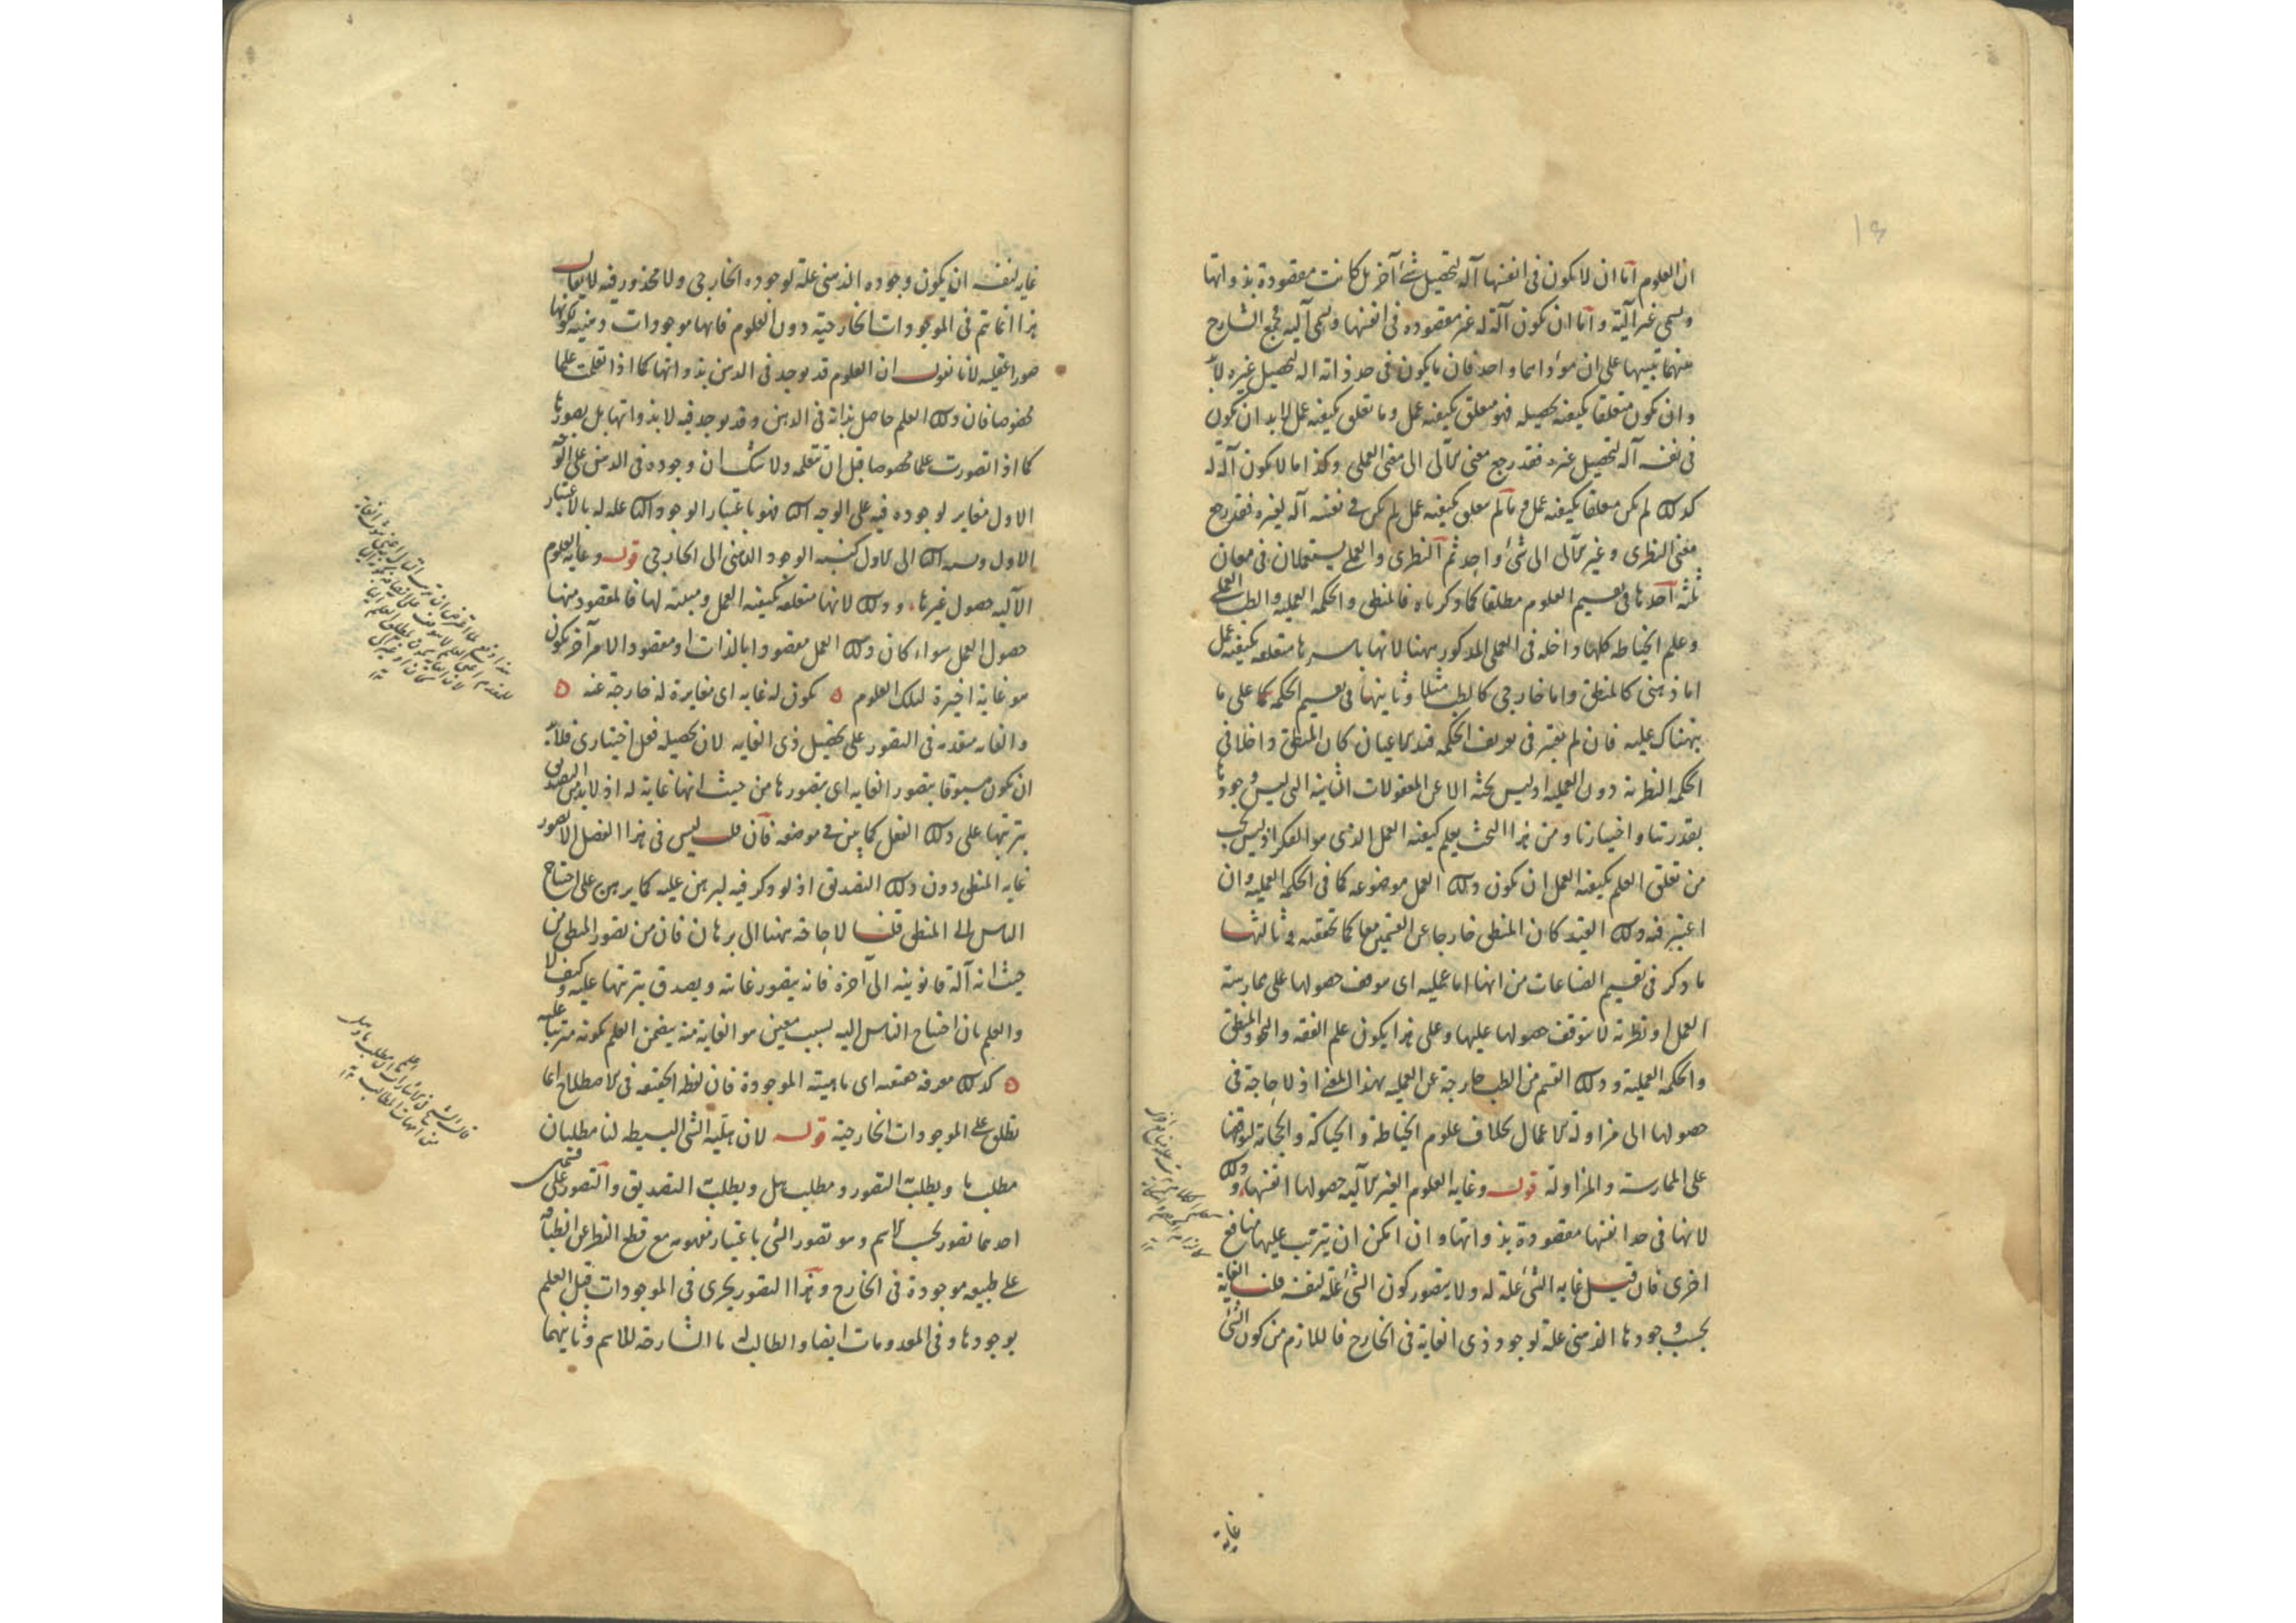 ان العلوم اما ان لا تكون فى انفسها آلة لتحصيل شئ آخر بل كانت مقصودة بذواتها
ويسمى غير آلية واما ان تكون آلة له غير مقصوده فى انفسها ويسمى آليه فجمع الشارح
بينهما تنبيها على ان مؤداهما واحد فان ما يكون فى حد ذاته الة لتحصيل غيره لابد
وان يكون متعلقا بكيفية تحصيله فهو متعلق بكيفية عمل وما تعلق بكيفية عمل لابد ان يكون
فى نفسه آلة لتحصيل غيره فقد رجع معنى الآلى الى معنى العملى وكذا ما لا يكون آلة له
كذلك لم يكن متعلقا بكيفية عمل وما لم يتعلق بكيفية عمل لم يكن فى نفسه آلة لغيره فقد رجع
معنى النظرى وغير الآلى الى شئ واحد ثم النظرى والعملى يستعملان فى معان
ثلثه احدها فى تقسيم العلوم مطلقا كما ذكرناه فالمنطق والحكمة العمليه والطب العملى
وعلم الخياطه كلها داخله فى العملى المذكور ههنا لانها باسرها متعلقه بكيفية عمل
اما ذهنى كالمنطق واما خارجى كالطب مثلا وثانيها فى تقسيم الحكمه كما على ما
نبهناك عليه فان لم يعتبر فى تعريف الحكمه قيد الاعيان كان المنطق داخلا فى
الحكمة النظرية دون العمليه اذ ليس بحثه الا عن المعقولات الثانيه التى ليس وجودها
بقدرتنا واختيارنا ومن هذا البحث يعلم كيفية العمل الذى هو الفكر اذ ليس يجب
من تعلق العلم بكيفية العمل ان يكون ذلك العمل موضوعه كما فى الحكمة العمليه وان
اعتبر فيه ذلك القيد كان المنطق خارجا عن القسمين معا كما تحققته وثالثها
ما ذكر فى تقسيم الصناعات من انها اما عمليه اى موقف حصولها على ممارسة
العمل او نظرية لا يتوقف حصولها عليها وعلى هذا يكون علم الفقه والنحو والمنطق
والحكمة العملية وذلك القسم من الطب خارجة عن العمليه بهذا المعنى اذ لا حاجة فى
حصولها الى مزاولة الاعمال بخلاف علوم الخياطة والحياكة والحجامة لتوقفها
على الممارسة والمزاولة قوله وغاية العلوم الغير الآلية حصولها انفسها وذلك
لانها فى حد انفسها مقصودة بذواتها وان امكن ان يترتب عليها منافع
اخرى فان قيل غاية الشئ علة له ولا يتصور كون الشئ علة لنفسه قلنا الغاية
بحسب وجودها الذهنى علة لوجود ذى الغاية فى الخارج فاللازم من كون الشئ
غاية
غاية لنفسه ان يكون وجوده الذهنى علة لوجوده الخارجى ولا محذور فيه لا يقال
هذا انما تم فى الموجودات الخارجية دون العلوم فانها موجودات ذهنية لكونها
صورا عقلية لانا نقول ان العلوم قد توجد فى الذهن بذواتها كما اذا تعلمت علما
مخصوصا فان ذلك العلم حاصل بذاته فى الذهن وقد توجد فيه لا بذواتها بل بصورها
كما اذا تصورت علما مخصوصا قبل ان تتعلمه ولا شك ان وجوده فى الذهن على الوجه
الاول مغاير لوجوده فيه على الوجه الثانى فهو باعتبار الوجود الثانى علة له بالاعتبار
الاول ونسبة الثانى الى الاول كنسبة الوجود الذهنى الى الخارجى قوله وغاية العلوم
الآليه حصول غيرها وذلك لانها متعلقه بكيفية العمل ومبينه لها فالمقصود منها
حصول العمل سواء كان ذلك العمل مقصودا بالذات او مقصودا لامر آخر يكون
هو غاية اخيرة لتلك العلوم ٥ يكون له غاية اى مغايرة له خارجة عنه ٥
والغاية متقدمه فى التصور على تحصيل ذى الغايه لان تحصيله فعل اختيارى فلابد
ان يكون مسبوقا بتصور الغايه اى بتصورها من حيث انها غاية له اذ لابد من التصديق
بترتبها على ذلك الفعل كما بين فى موضعه فان قلت ليس فى هذا الفصل الا تصور
غاية المنطق دون ذلك التصديق اذ لو ذكر فيه لبرهن عليه كما برهن على احتياج
الناس الى المنطق قلنا لا حاجة ههنا الى برهان فان من تصور المنطق من
حيث انه آلة قانونية الى آخره فانه يتصور غايته ويصدق بترتبها عليه وكيف لا
والعلم بان احتياج الناس اليه بسبب معين هو الغاية منه يتضمن العلم بكونه مترتبا عليه
٥ كذلك معرفة حقيقته اى ماهيته الموجودة فان لفظ الحقيقة فى الاصطلاح انما
تطلق على الموجودات الخارجية قوله لان هلية الشئ البسيطه لنا مطلبان
مطلب ما ويطلب به التصور ومطلب هل ويطلب به التصديق والتصور على قسمين
احدهما تصور بحسب الاسم وهو تصور الشئ باعتبار مفهومه مع قطع النظر عن انطباقه
على طبيعه موجودة فى الخارج وهذا التصور يجرى فى الموجودات قبل العلم
بوجودها وفى المعدومات ايضا والطالب له ما الشارحة للاسم وثانيهما